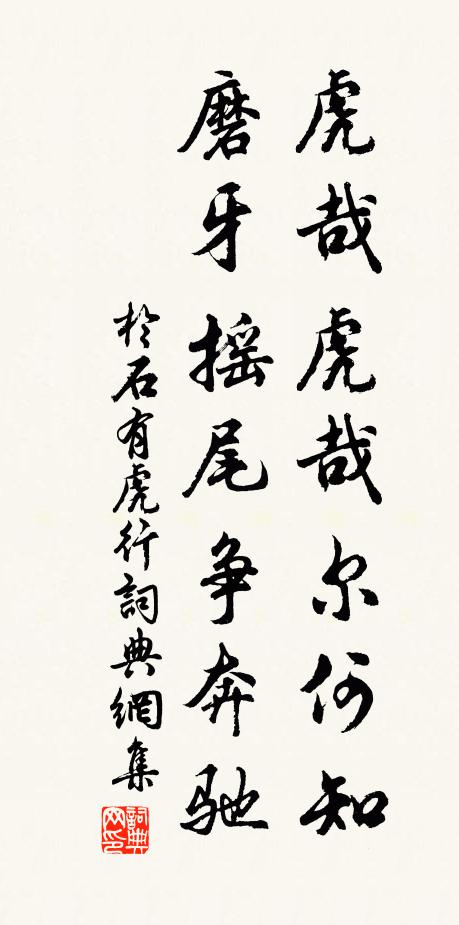 虎哉虎哉尔何知
磨牙摇尾争奔驰
於石有虎行詞典網集
詞典网印